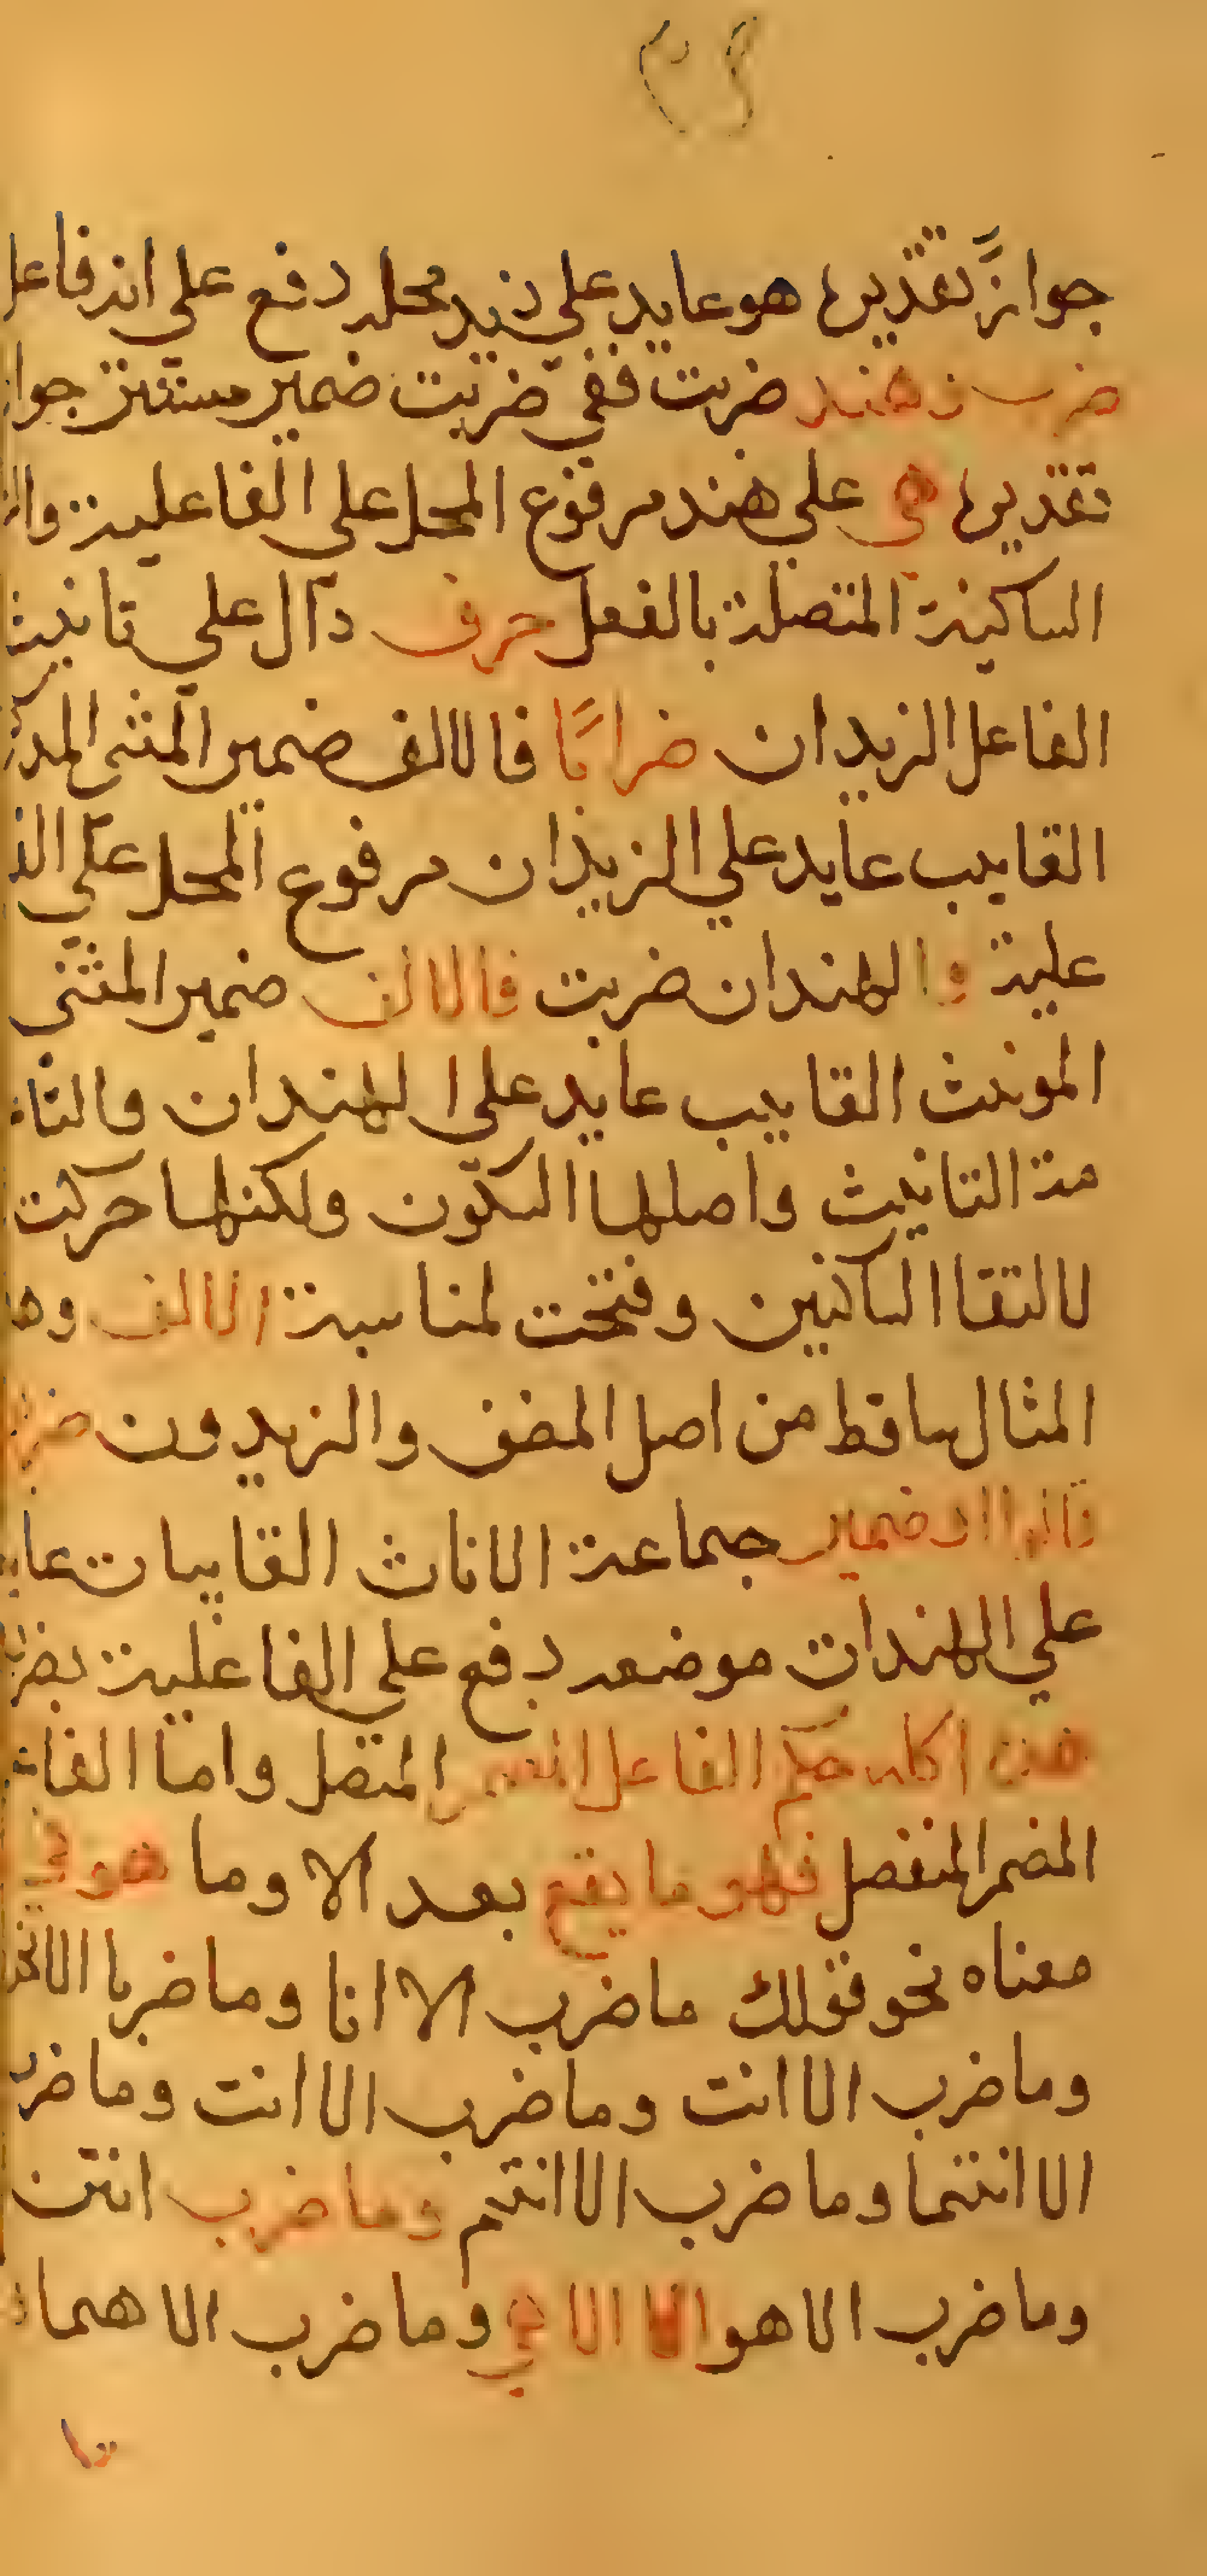 جوازً تقديره هو عايد على زيد محله رفع على انه فاعل
ضرب وهند ضربت ففي ضربت ضمير مستتر جوا
تقديره هي على هند مرفوع المحل على الفاعلية
الساكينة المتصلة بالفعل حرف دآل على تانيث
الفاعل الزيدان ضرابًا فالالف ضمير المثنى المذ
القايب عايد على الزيدان مرفوع المحل على
علية والهندان ضربت فالالف ضمير المثنى
المونث القايب عايد على الهندان والتا
مة التانيث واصلها السكون ولكنها حركت
لالتقا الساكنين وفتحت لمناسبة الالف
المثال ساقط من اصل المضف والزيدون
ضمير جماعة الاناث القايبات
على الهندات موضعه رفع على الفاعلية
كله حكم الفاعل المتصل واما الفا
المضمر المنفصل فهو ما يقع بعد الا وما هو في
معناه نحو قولك ما ضرب الا انا وما ضربا الا نحن
وما ضرب الا انت وما ضرب الا انت وما ضر
الا انتما وما ضرب الا انتم وما ضرب انتن
وما ضرب الا هو الا الا هي وما ضرب الا هما